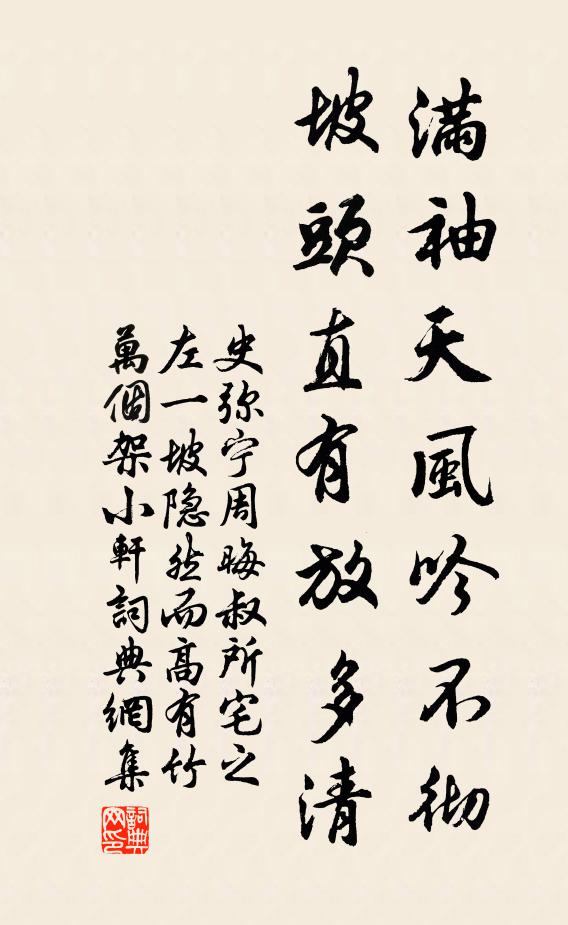 滿袖天風吟不彻
坡頭直有放多清
史弥宁周晦叔所宅之
左一坡隐然而高有竹
萬個架小軒詞典網集
詞典
网印